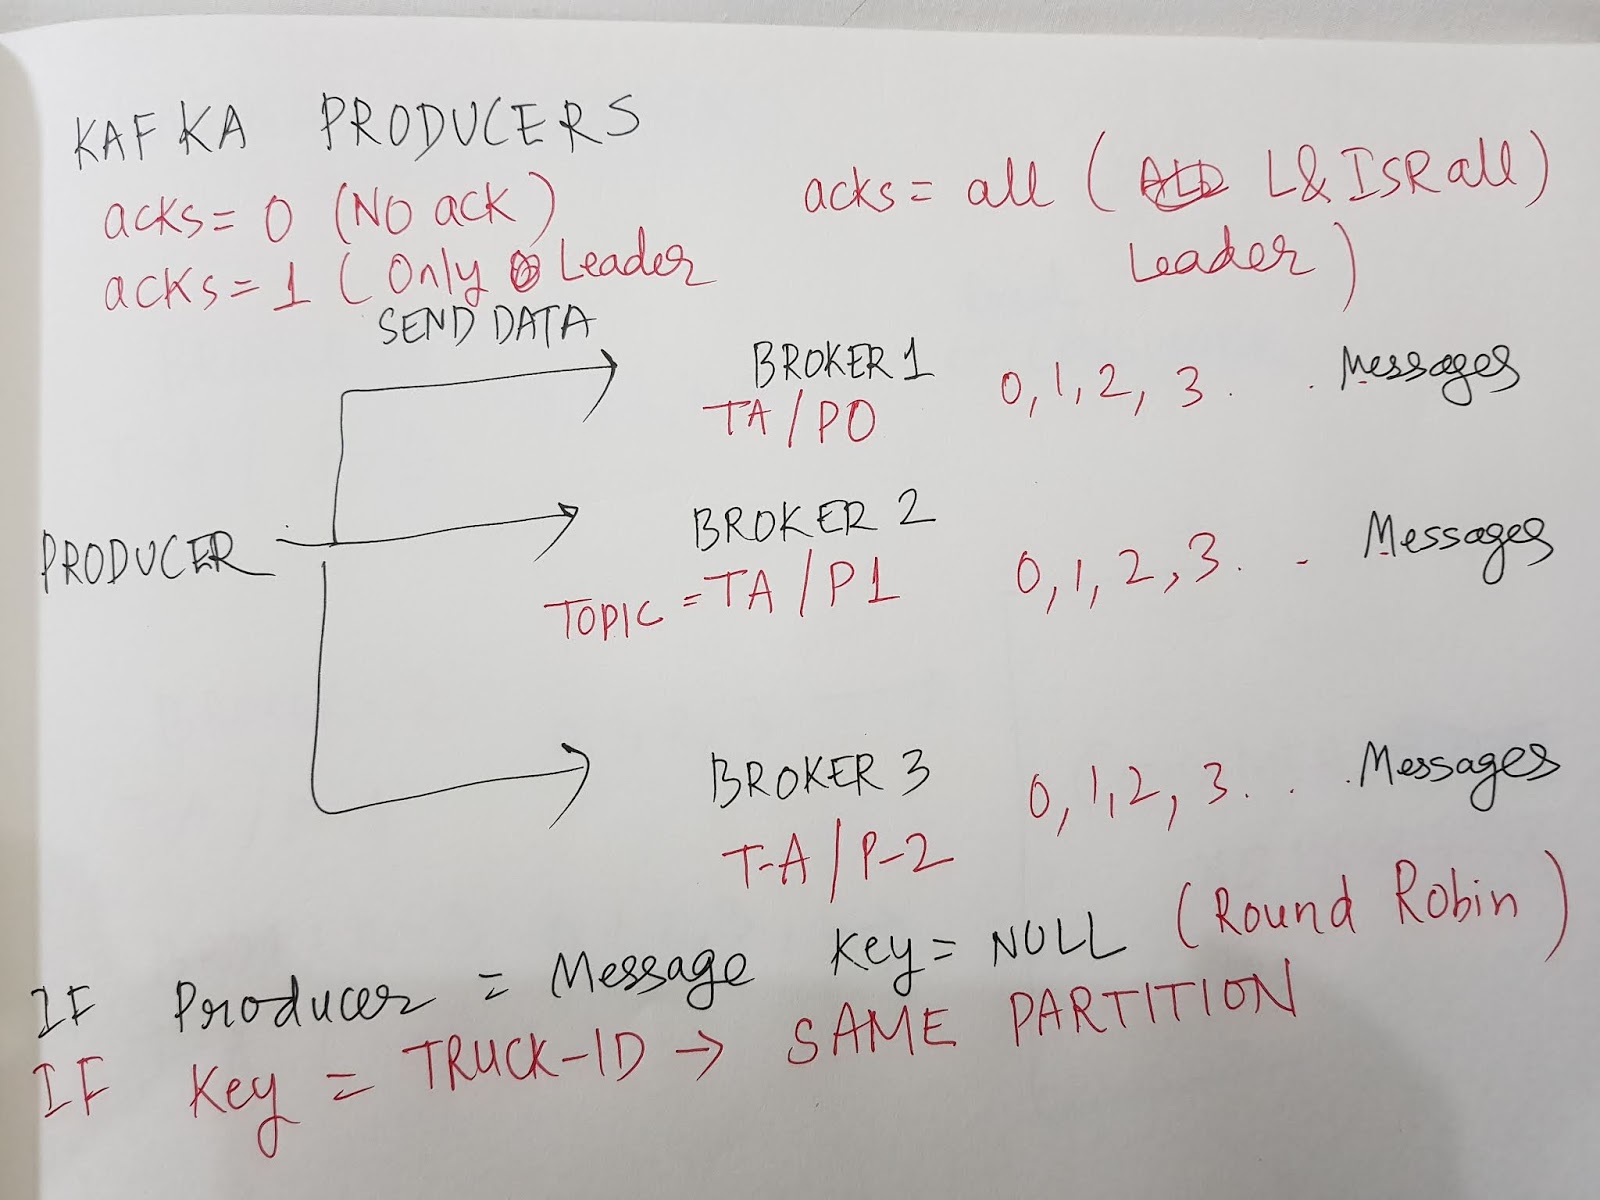 KAFKA PRODUCERS
acks= 0 (No ack)
acks= all ( L & ISR all)
Leader)
acks=1 ( Only Leader
SEND DATA
BROKER 1 0, 1, 2, 3. . Messages
TA/P0
PRODUCER
BROKER 2 0, 1, 2, 3. - Messages
TOPIC = TA/P1
BROKER 3 0, 1, 2, 3. . . Messages
T-A/P-2
IF Producer = Message Key= NULL (Round Robin)
IF Key = TRUCK-ID → SAME PARTITION